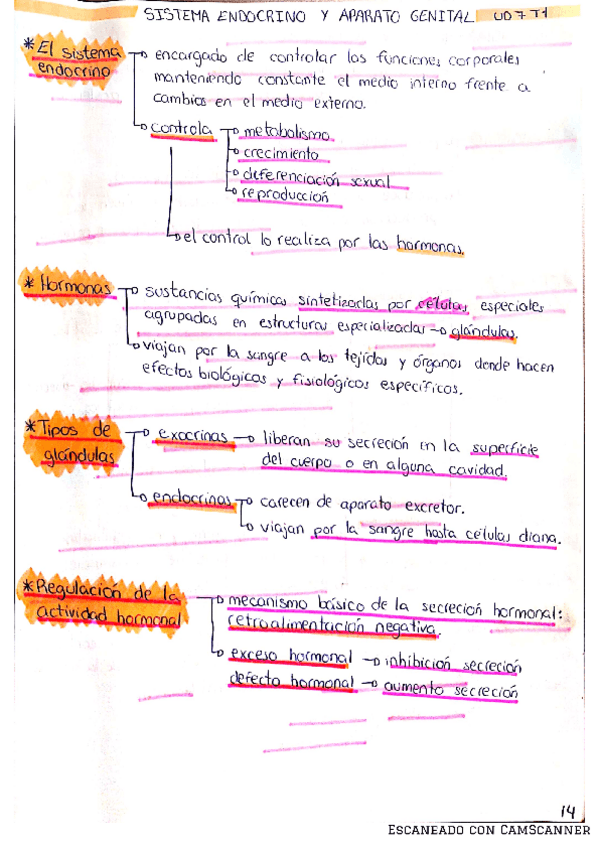 SISTEMA ENDOCRINO Y APARATO GENITAL UD7T1
*El sistema endocrino
encargado de controlar las funciones corporales
manteniendo constante el medio interno frente a
cambios en el medio externo.
controla
metabolismo
crecimiento
deferenciación sexual
reproducción
el control lo realiza por las hormonas.
*Hormonas
sustancias químicas sintetizadas por células especiales
agrupadas en estructuras especializadas → glándulas.
viajan por la sangre a los tejidos y órganos donde hacen
efectos biológicos y fisiológicos específicos.
*Tipos de
glándulas
exocrinas → liberan su secreción en la superficie
del cuerpo o en alguna cavidad.
endocrinas
carecen de aparato excretor.
viajan por la sangre hasta células diana.
*Regulación de la
actividad hormonal
mecanismo básico de la secreción hormonal:
retroalimentación negativa.
exceso hormonal → inhibición secreción
defecto hormonal → aumento secreción
14
ESCANEADO CON CAMSCANNER